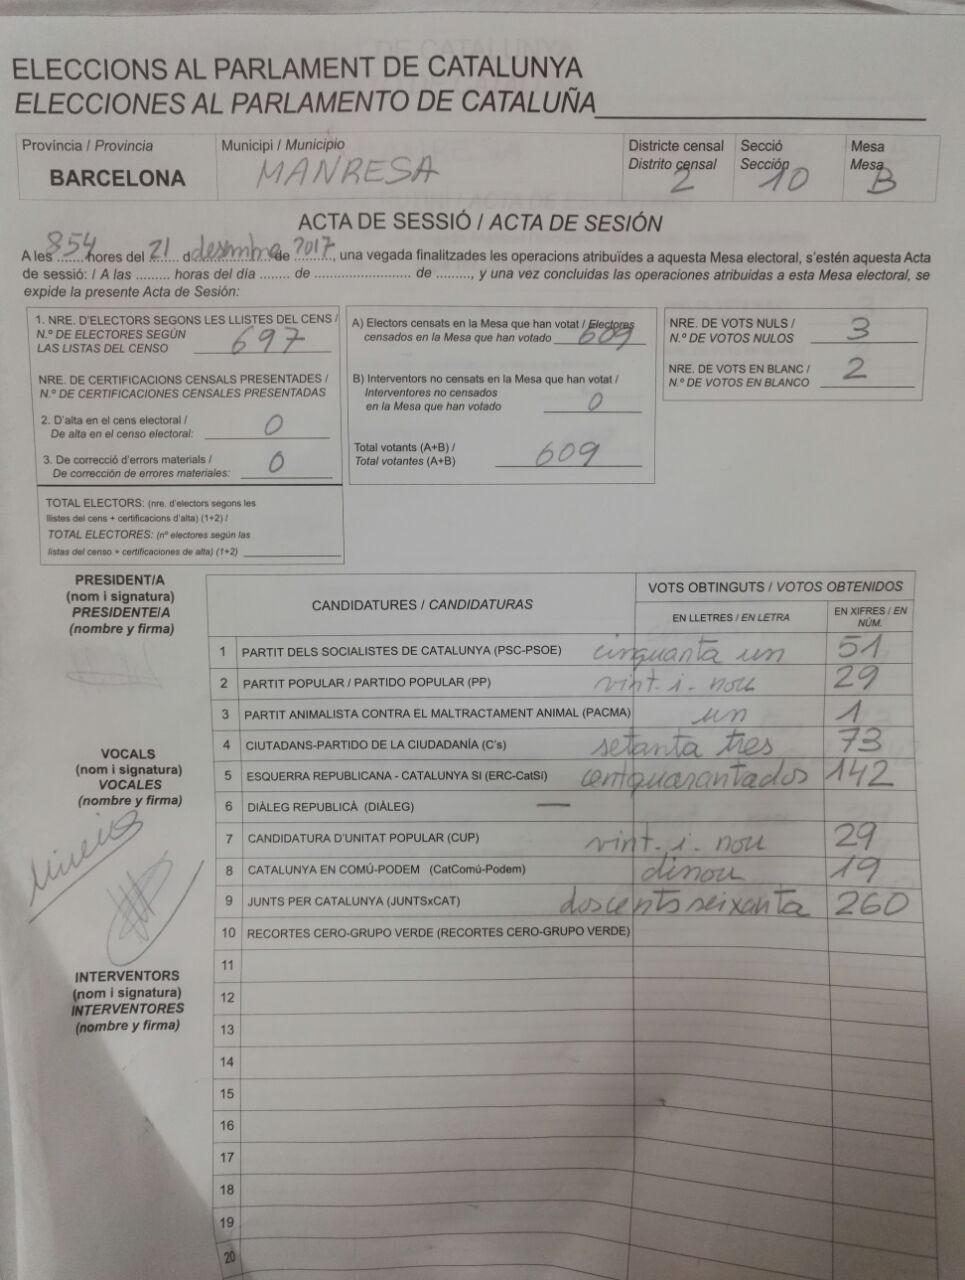 ELECCIONS AL PARLAMENT DE CATALUNYA
ELECCIONES AL PARLAMENTO DE CATALUÑA
Provincia / Provincia
BARCELONA
Municipi / Municipio
MANRESA
Districte censal
Distrito censal
2
Secció
Sección
10
Mesa
Mesa
B
ACTA DE SESSIÓ / ACTA DE SESIÓN
A les 854 hores del 21 d desembre de 2017, una vegada finalitzades les operacions atribuïdes a aquesta Mesa electoral, s'estén aquesta Acta
de sessió: / A las ......... horas del día ........ de ........................ de .........., y una vez concluidas las operaciones atribuidas a esta Mesa electoral, se
expide la presente Acta de Sesión:
1. NRE. D'ELECTORS SEGONS LES LLISTES DEL CENS /
N.º DE ELECTORES SEGÚN
LAS LISTAS DEL CENSO 697
NRE. DE CERTIFICACIONS CENSALS PRESENTADES /
N.º DE CERTIFICACIONES CENSALES PRESENTADAS
2. D'alta en el cens electoral /
De alta en el censo electoral: 0
3. De correcció d'errors materials /
De corrección de errores materiales: 0
TOTAL ELECTORS: (nre. d'electors segons les
llistes del cens + certificacions d'alta) (1+2) /
TOTAL ELECTORES: (nº electores según las
listas del censo + certificaciones de alta) (1+2)
A) Electors censats en la Mesa que han votat / Electores
censados en la Mesa que han votado 609
B) Interventors no censats en la Mesa que han votat /
Interventores no censados
en la Mesa que han votado 0
Total votants (A+B) /
Total votantes (A+B) 609
NRE. DE VOTS NULS /
N.º DE VOTOS NULOS 3
NRE. DE VOTS EN BLANC /
N.º DE VOTOS EN BLANCO 2
PRESIDENT/A
(nom i signatura)
PRESIDENTE/A
(nombre y firma)
VOCALS
(nom i signatura)
VOCALES
(nombre y firma)
INTERVENTORS
(nom i signatura)
INTERVENTORES
(nombre y firma)
CANDIDATURES / CANDIDATURAS
VOTS OBTINGUTS / VOTOS OBTENIDOS
EN LLETRES / EN LETRA
EN XIFRES / EN
NÚM.
1 PARTIT DELS SOCIALISTES DE CATALUNYA (PSC-PSOE) cinquanta un 51
2 PARTIT POPULAR / PARTIDO POPULAR (PP) vint-i-nou 29
3 PARTIT ANIMALISTA CONTRA EL MALTRACTAMENT ANIMAL (PACMA) un 1
4 CIUTADANS-PARTIDO DE LA CIUDADANÍA (C's) setanta tres 73
5 ESQUERRA REPUBLICANA - CATALUNYA SI (ERC-CatSí) centquarantados 142
6 DIÀLEG REPUBLICÀ (DIÀLEG) —
7 CANDIDATURA D'UNITAT POPULAR (CUP) vint-i-nou 29
8 CATALUNYA EN COMÚ-PODEM (CatComú-Podem) dinou 19
9 JUNTS PER CATALUNYA (JUNTSxCAT) doscents seixanta 260
10 RECORTES CERO-GRUPO VERDE (RECORTES CERO-GRUPO VERDE)
11
12
13
14
15
16
17
18
19
20